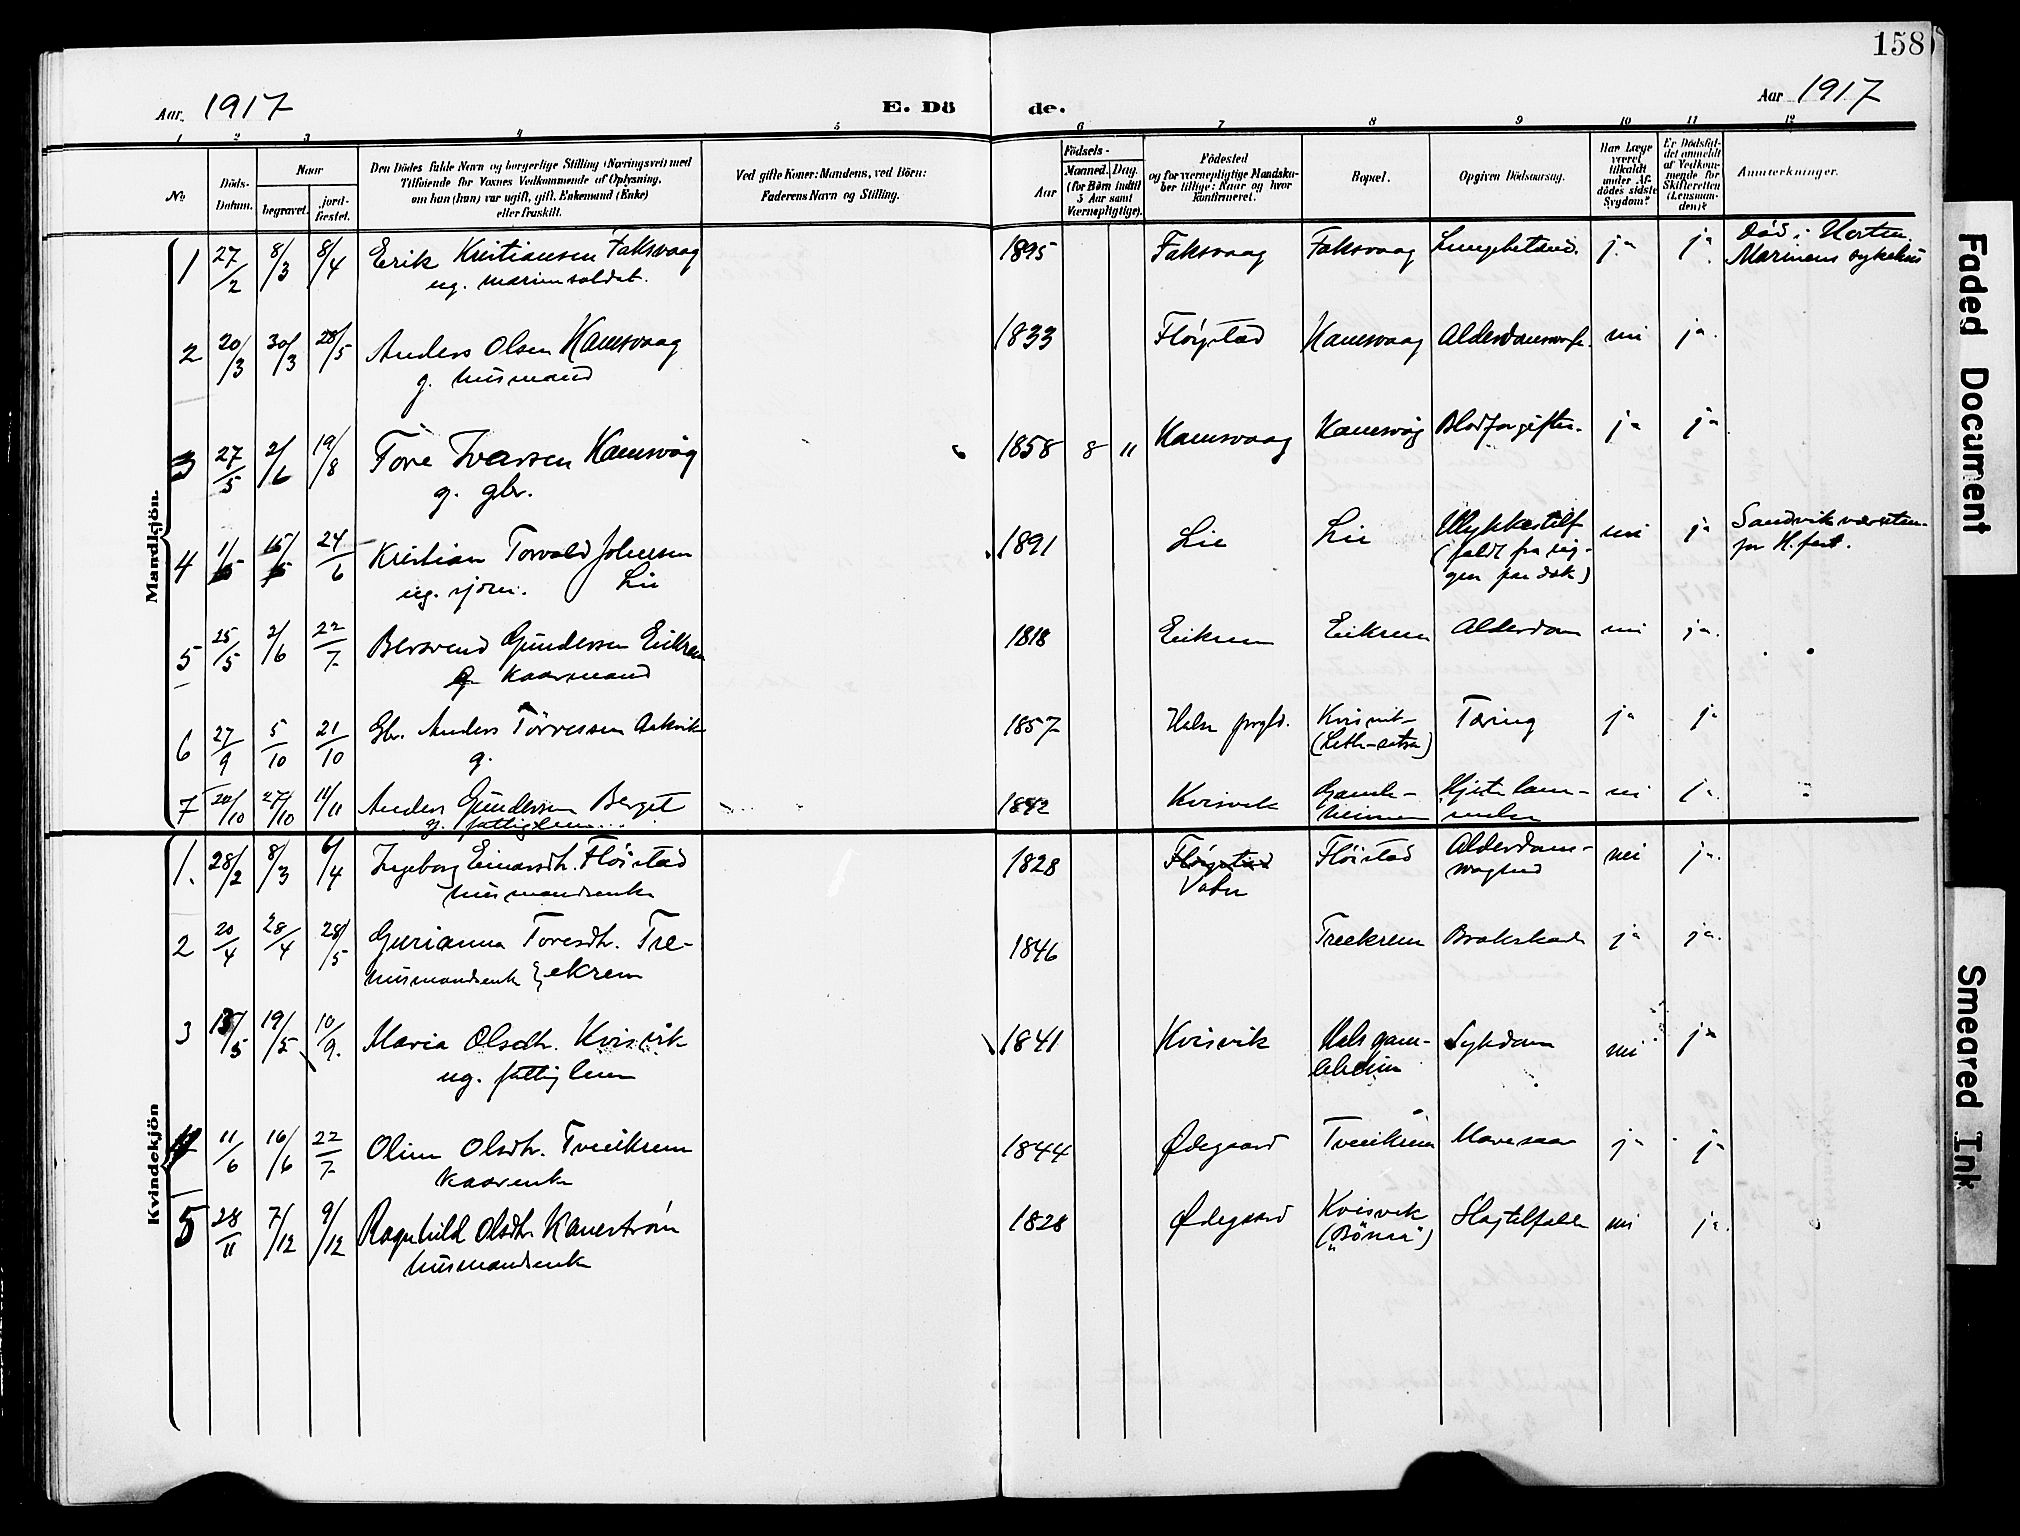 158
Aar 1917 E. Dö de. Aar 1917
1 2 3 4 5 6 7 8 9 10 11 12
No. Döds-Datum. Naar begravet. jord-fæstet. Den Dödes fulde Navn og borgerlige Stilling (Næringsvei) med Tilföiende for Voxnes Vedkommende af Oplysning, om han (hun) var ugift, gift, Enkemand (Enke) eller fraskilt. Ved gifte Koner: Mandens, ved Börn: Faderens Navn og Stilling. Födsels- Aar Maaned. Dag. (for Börn indtil 5 Aar samt Værnepligtige). Födested og for værnepligtige Mandskaber tillige: Naar og hvor konfirmeret. Bopæl. Opgiven Dödsaarsag. Har Læge været tilkaldt under Afdödes sidste Sygdom? Er Dödsfaldet anmeldt af Vedkommende for Skifteretten (Lensmanden)? Anmerkninger.
Mandkjön.
1 27/2 8/3 8/4 Erik Kristiansen Faksvaag 1895 Faksvaag Faksvaag Lungebetænd. ja ja Död i Horten,
ug. marinesoldat. Marinens sykehus
2 20/3 30/3 28/5 Anders Olsen Kamsvaag 1833 Fløystad Kamsvaag nei ja.
g. husmand
3 27/5 2/6 19/8 Tore Ivarsen Kamsvåg 1858 8 " Kamsvaag Kamsvåg Blodforgiftn. ja ja
g. gbr.
4 1/5 15/5 24/6 Kristian Torvald Johnsen 1891 Lie Lie Ulykkestilf. nei ja Sandvik
ug. sjöm. Lie (faldt fra rig-
gen paa dæk)
5 25/5 2/6 22/7 Gundersen Eikrem 1818 Eikrem Eikrem Alderdom nei ja.
kaarmand
6 27/9 5/10 21/10 Gbr. Anders 1857 Halse prgld. Kvisvik Tæring ja ja
g.
7 20/10 27/10 11/11 Anders Gundersen Berget 1842 Kvisvik Gamle- Hjertelam- nei ja
g. fattiglem heimen melse
Kvindekjön
1. 28/2 8/3 6/4 Ingeborg Einarsdtr. Fløistad 1828 Fløystad Fløistad Alderdoms- nei ja.
husmandsenke svaghed
2 20/4 28/4 28/5 Gurianna Toresdtr. Tre- 1846 Treekrem Brokskade ja ja.
husmandsenke ekrem
3 13/5 19/5 10/9. Maria Olsdtr. Kvisvik 1841 Kvisvik Hals gam- Sykdom nei ja
ug. fattiglem leheim
4 11/6 16/6 22/7 Oline Olsdtr. Tveeikrem 1844 Ødegaard Tveeikrem Mavesaar ja ja
kaarenke
5 28/11 7/12 9/12 Ragnhild Olsdtr. Kanestrøm 1828 Ødegaard Kvisvik Slagtilfælde nei ja.
husmandsenke
Faded Document
Smeared Ink